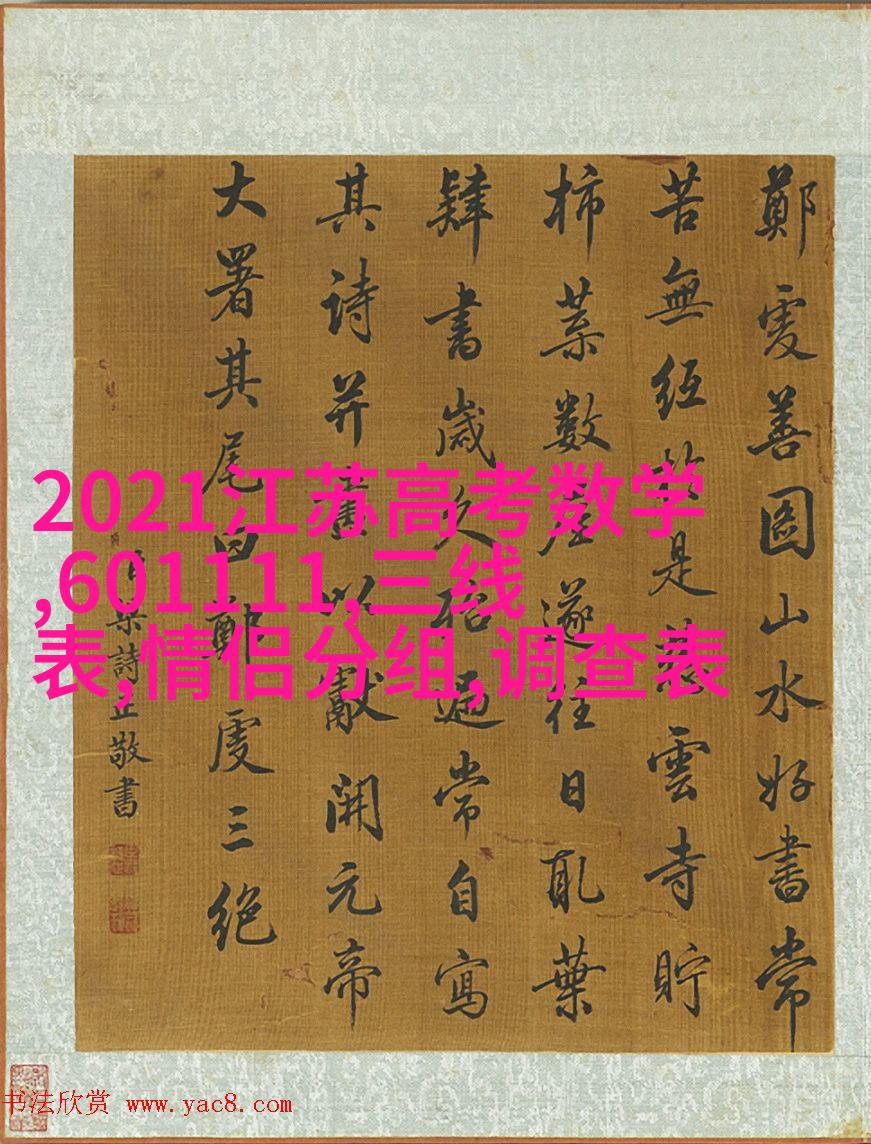 鄭虔善圖山水好書常
苦無紙於是慈雲寺貯
柿葉數屋遂往日取葉
肄書歲久殆遍常自寫
其詩并畫以獻開元帝
大署其尾曰鄭虔三絕
臣梁詩正敬書
2021江苏高考数学
,601111,三线
表,情侣分组,调查表
书法欣赏 www.yac8.com